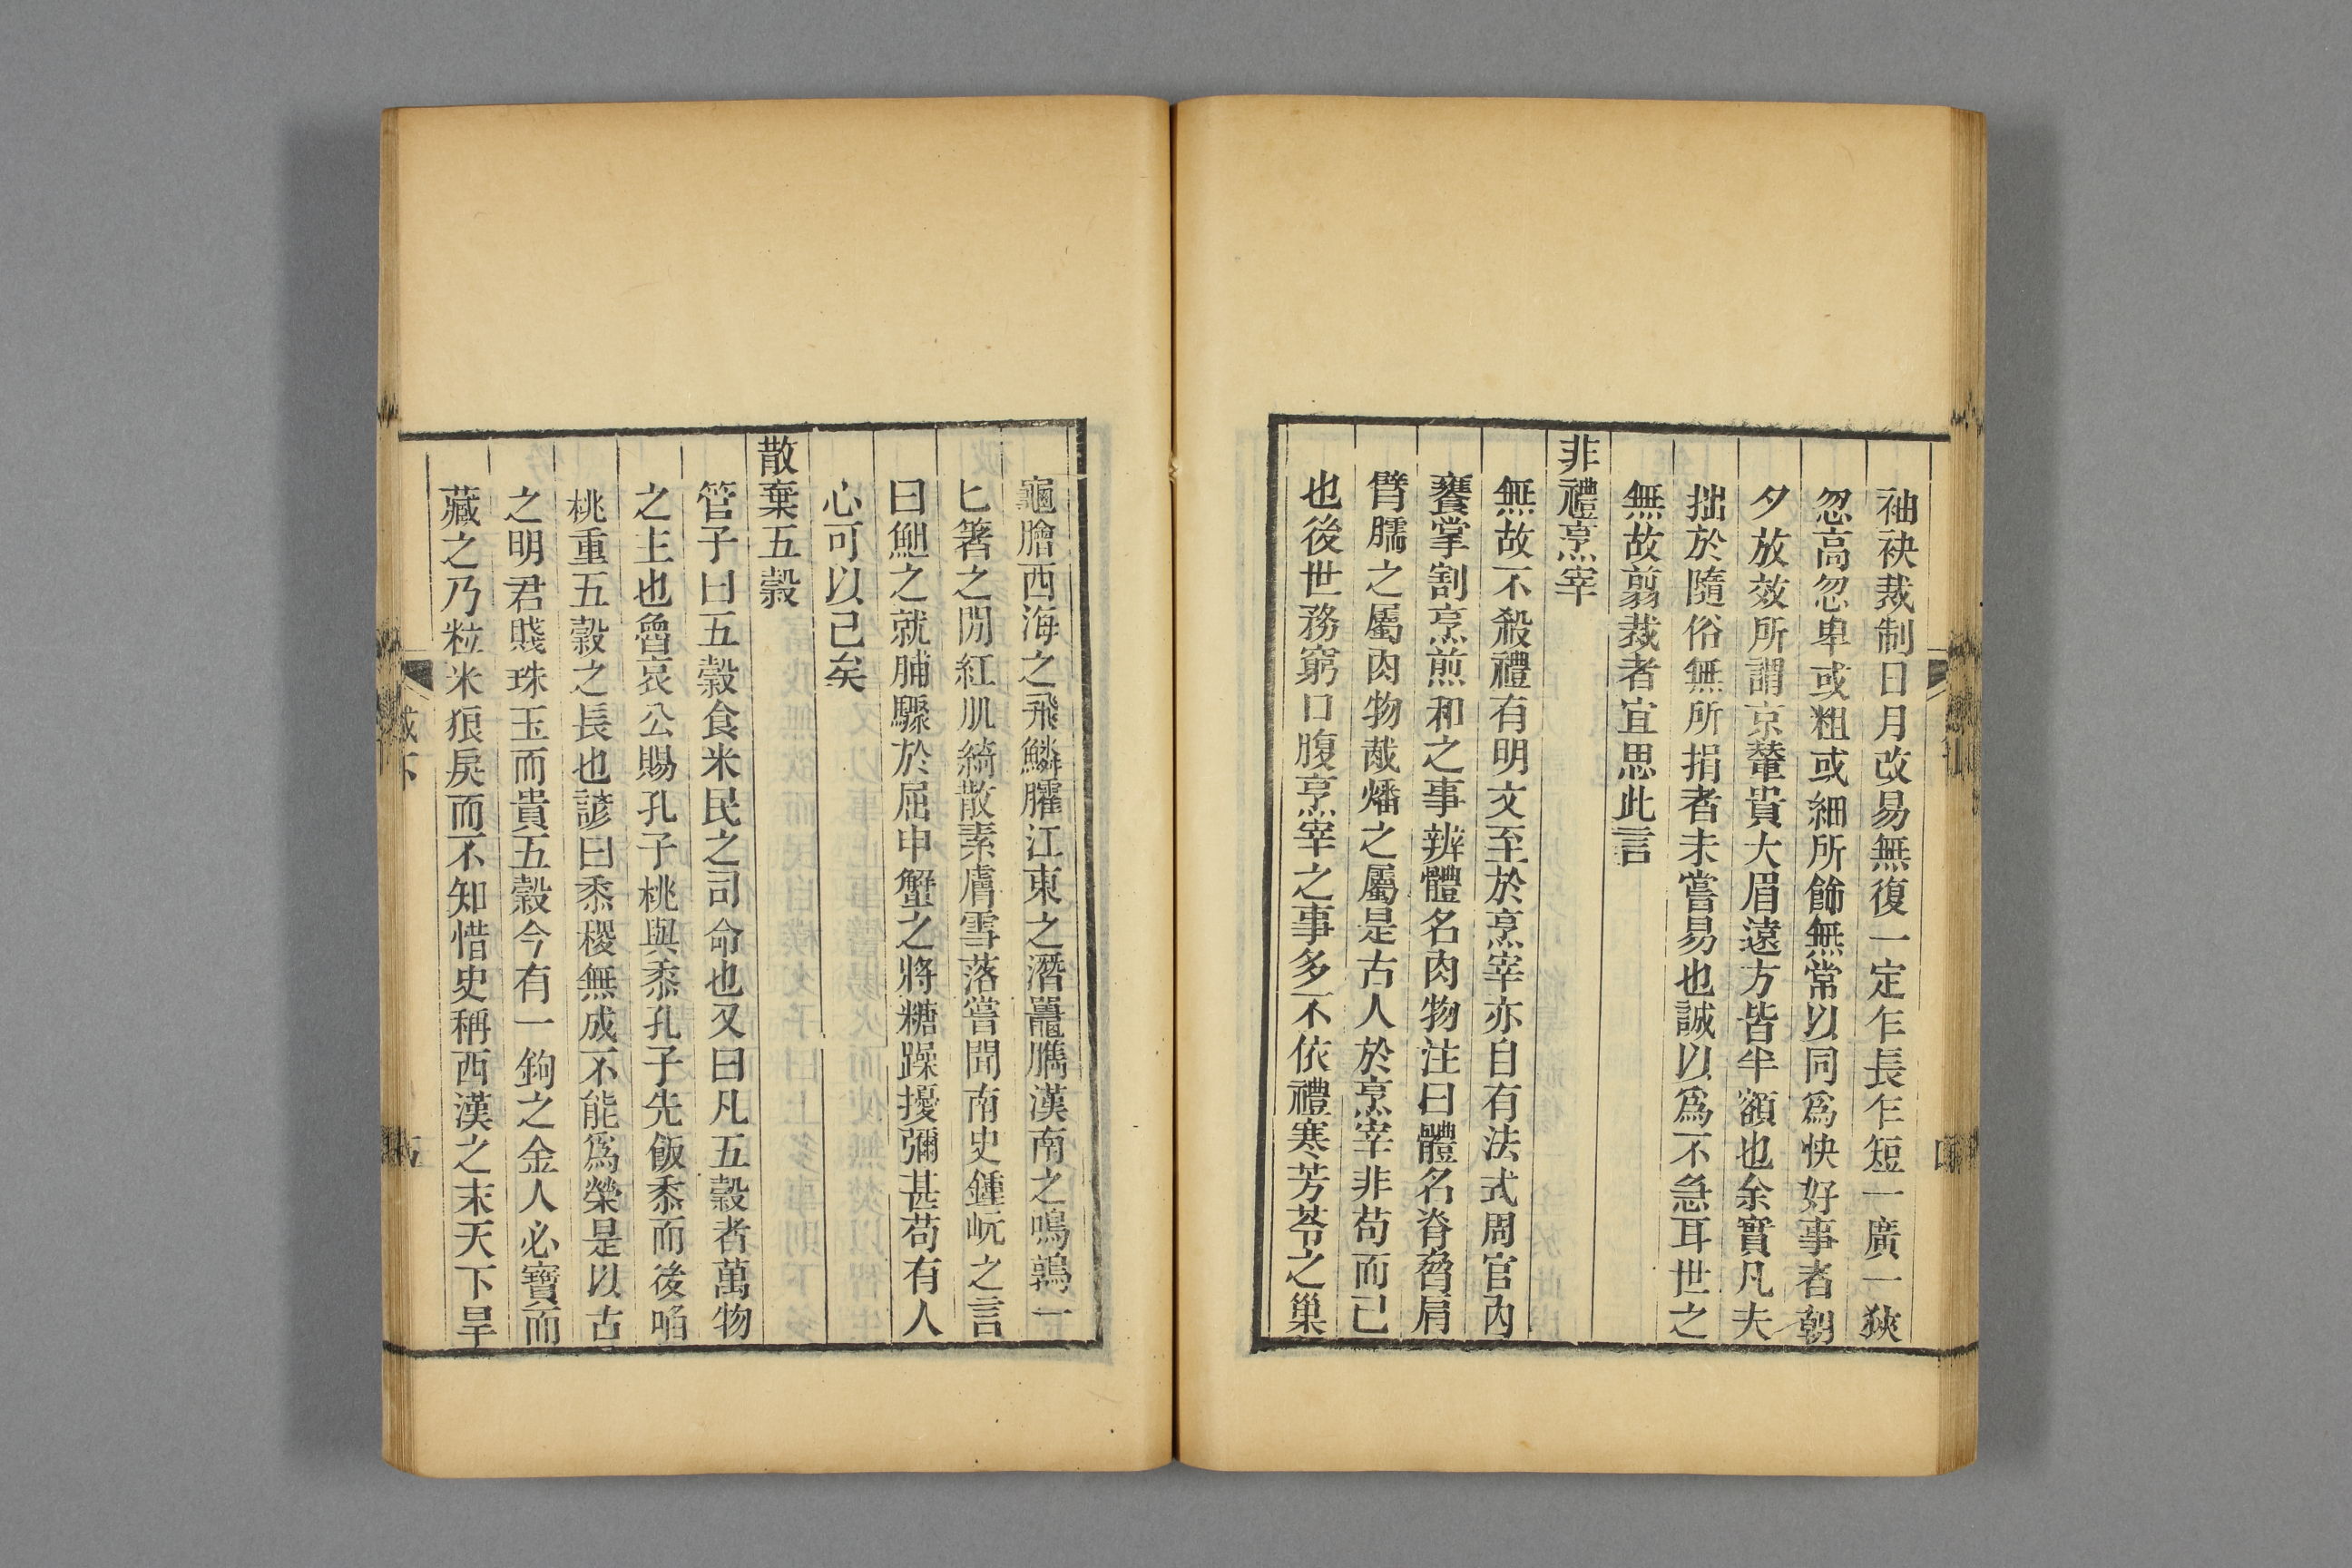 袖袂裁制日月改易無復一定乍長乍短一廣一狹
忽高忽卑或粗或細所飾無常以同爲快好事者朝
夕放效所謂京輦貴大眉遠方皆半額也余實凡夫
拙於隨俗無所捐者未嘗易也誠以爲不急耳世之
無故翦裁者宜思此言
非禮烹宰
無故不殺禮有明文至於烹宰亦自有法式周官內
饔掌割烹煎和之事辨體名肉物注曰體名脊脅肩
臂臑之屬肉物胾燔之屬是古人於烹宰非苟而已
也後世務窮口腹烹宰之事多不依禮寒芳苓之巢
龜膾西海之飛鱗臛江東之潛鼉臇漢南之鳴鶉一
匕箸之閒紅肌綺散素膚雪落嘗聞南史鍾岏之言
曰䱇之就脯驟於屈申蟹之將糖躁擾彌甚苟有人
心可以已矣
散棄五穀
管子曰五穀食米民之司命也又曰凡五穀者萬物
之主也魯哀公賜孔子桃與黍孔子先飯黍而後啗
桃重五穀之長也諺曰黍稷無成不能爲榮是以古
之明君賤珠玉而貴五穀今有一鉤之金人必寶而
藏之乃粒米狼戾而不知惜史稱西漢之末天下旱